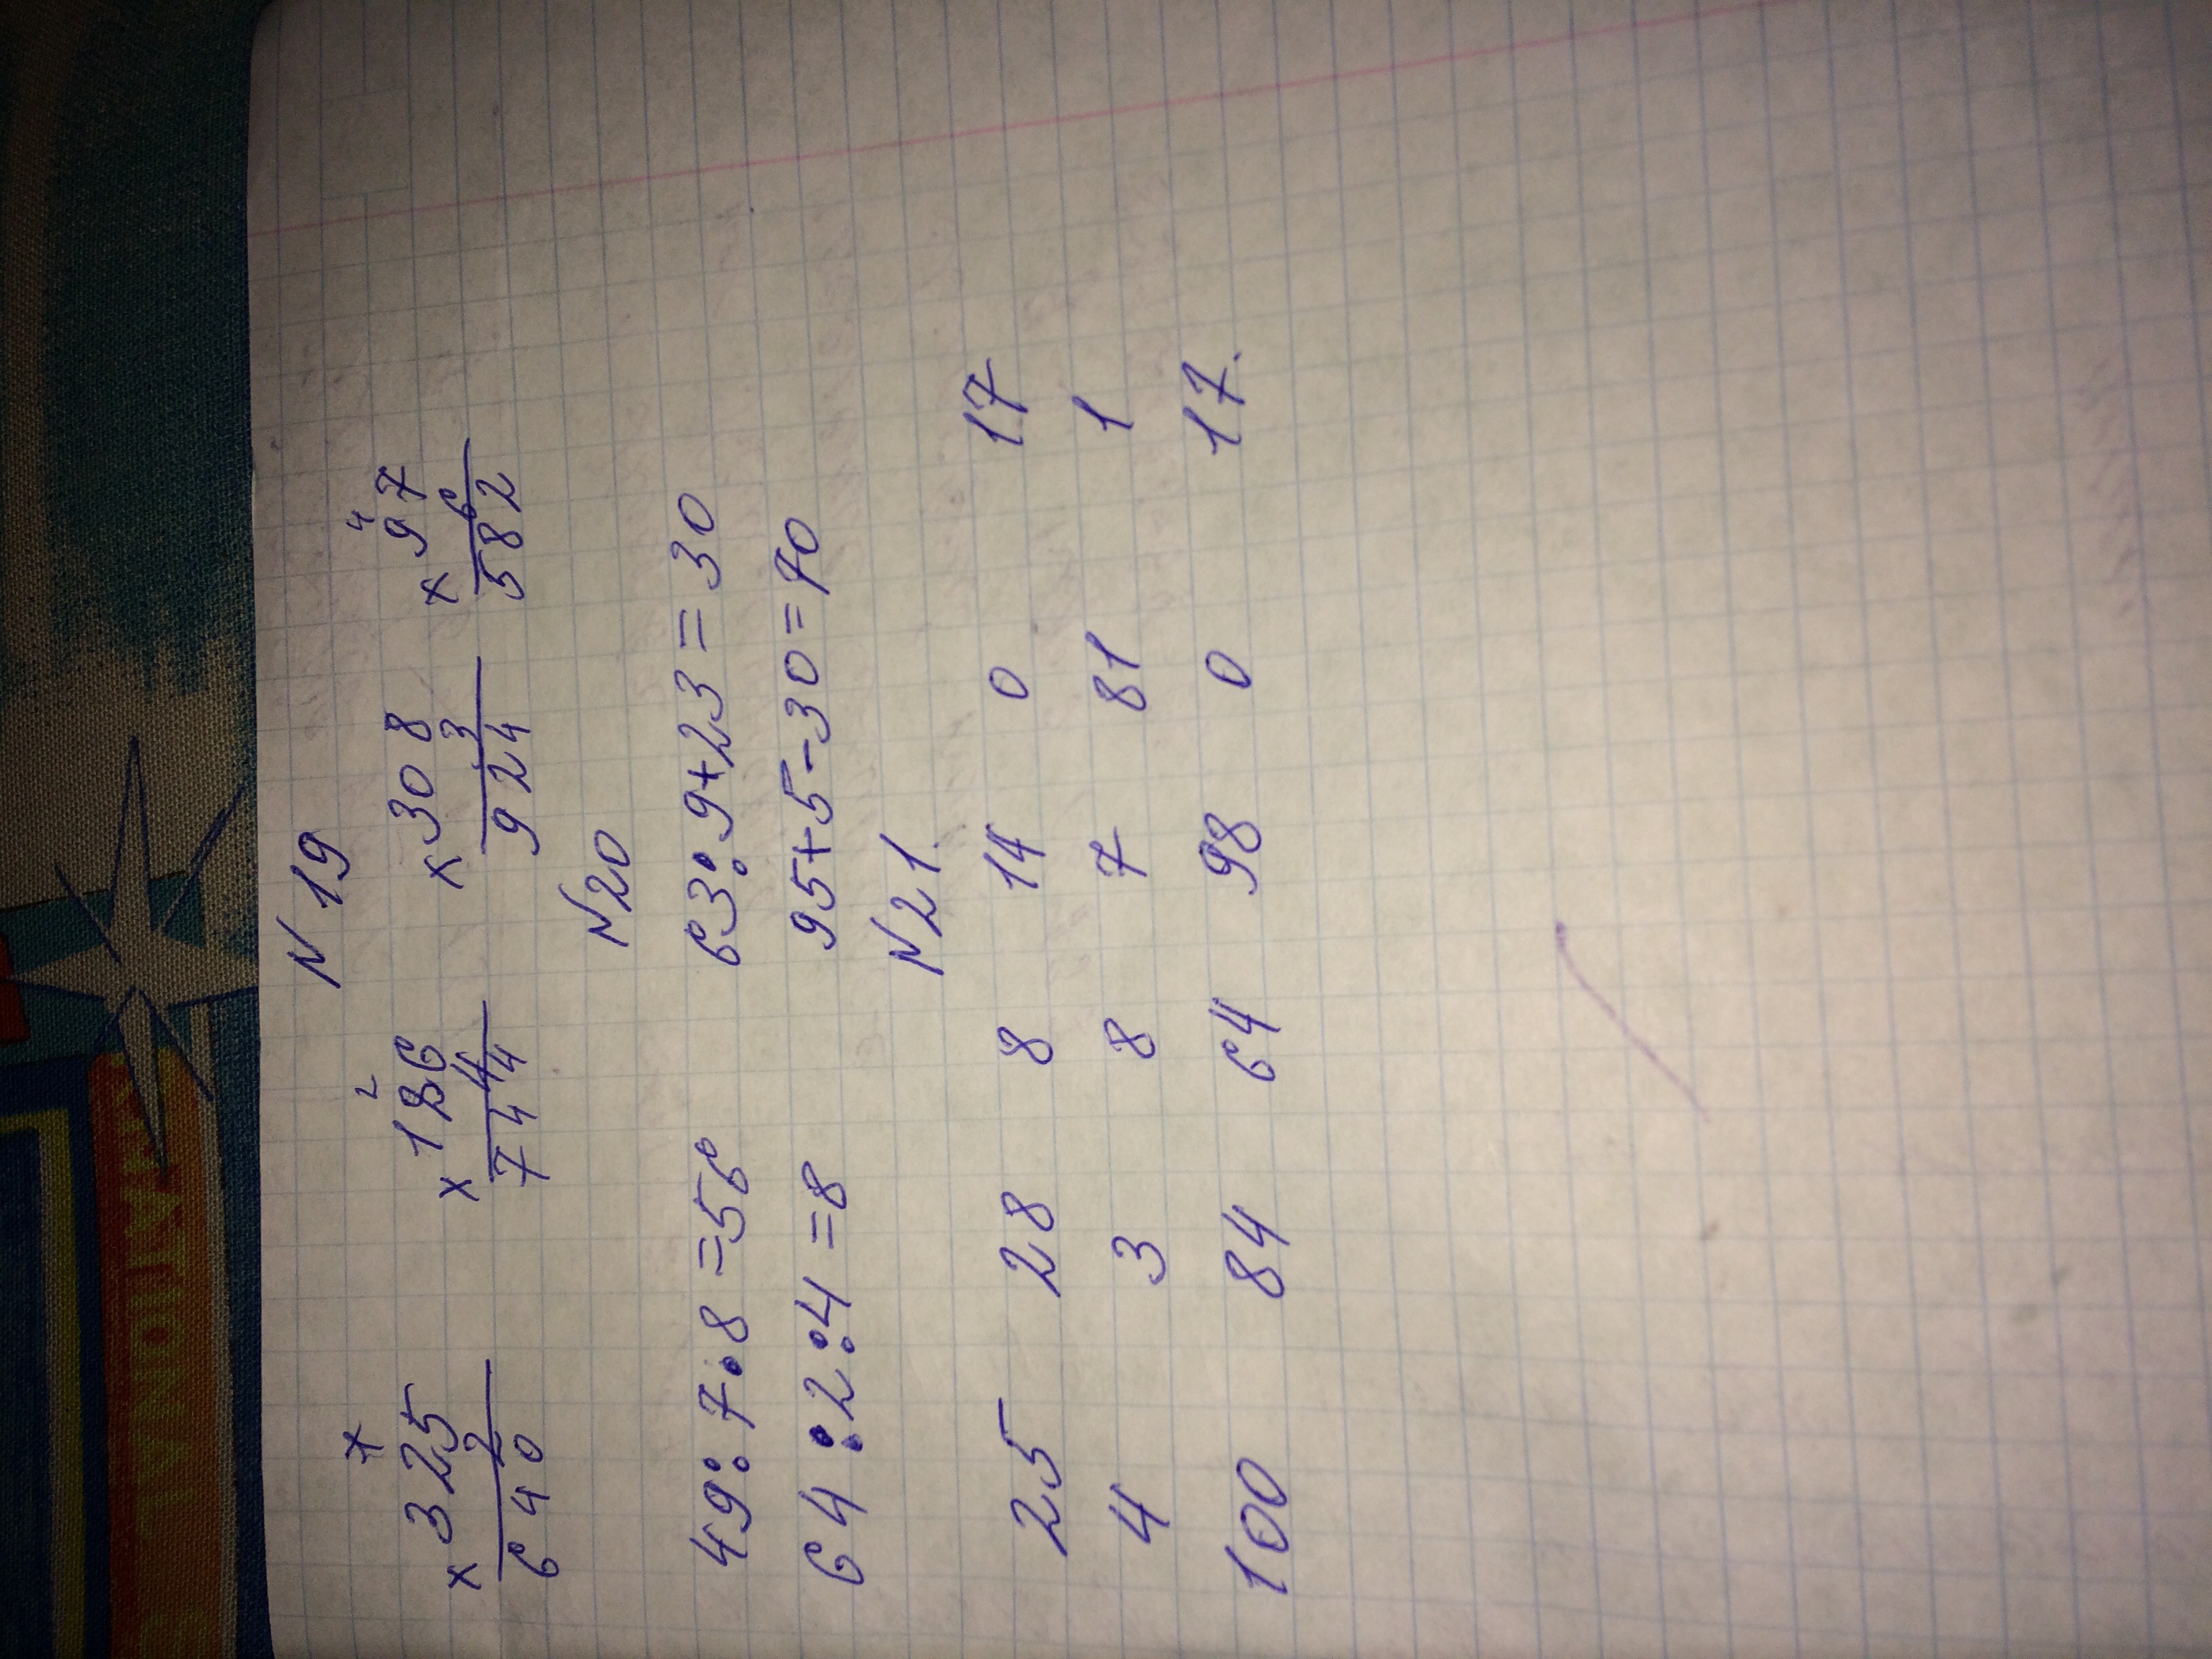 N 19
2 4
x 325 x 186 x 308 x 97
2 4 3 6
640 744 924 582
N20
49:7·8=56 63:9+23=30
64:2:4=8 95+5-30=70
N21.
25 28 8 14 0 17
4 3 8 7 81 1
100 84 64 98 0 17.